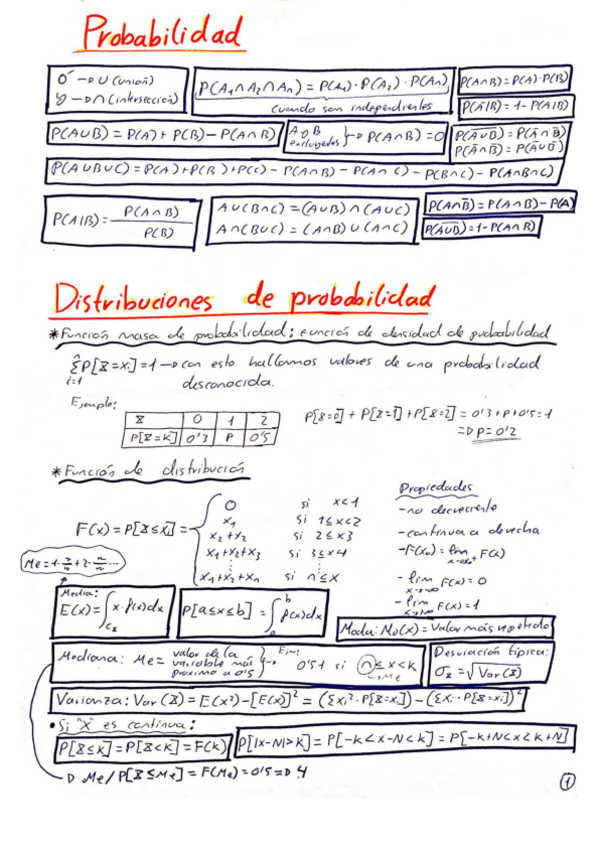 Probabilidad
O → ∪ (unión)
y → ∩ (intersección)
P(A₁∩A₂∩Aₙ) = P(A₁)·P(A₂)·P(Aₙ)
cuando son independientes
P(A∩B)=P(A)·P(B)
P(Ā|B)=1-P(A|B)
P(A∪B) = P(A) + P(B) - P(A∩B)
A y B
excluyentes } → P(A∩B)=0
P(A∪B∪C) = P(A)+P(B)+P(C) - P(A∩B) - P(A∩C) - P(B∩C) - P(A∩B∩C)
P(A|B) = P(A∩B) / P(B)
A∪(B∩C) = (A∪B)∩(A∪C)
A∩(B∪C) = (A∩B)∪(A∩C)
P(A∩B̄)=P(A∩B)-P(A)
Distribuciones de probabilidad
*Función masa de probabilidad: función de densidad de probabilidad
Σ P[X=xᵢ]=1 → con esto hallamos valores de una probabilidad
i=1
desconocida.
Ejemplo:
X 0 1 2
P[X=k] 0'3 P 0'5
P[X=0] + P[X=1] + P[X=2] = 0'3+P+0'5=1
⇒ P=0'2
*Función de distribución
F(x) = P[X≤xᵢ] =
0 si x<1
x₁ si 1≤x<2
x₁+x₂ si 2≤x3
x₁+x₂+x₃ si 3≤x4
⋮
x₁+x₂+xₙ si n≤x
Propiedades
-no decreciente
-continua a derecha
-F(x₀)=lim F(x)
-lim F(x)=0
-lim F(x)=1
Media:
E(x)=∫ x·f(x)dx
P[a≤x≤b] = ∫ₐᵇ f(x)dx
Moda: Mo(x)=Valor más repetido
Mediana: Me= valor de la
variable más
próximo a 0'5
Ejm:
0'51 si n≤x<k
→Me
Desviación típica:
σₓ=√Var(X)
Varianza: Var(X) = E(x²)-[E(x)]² = (Σxᵢ²·P[X=xᵢ]) - (Σxᵢ·P[X=xᵢ])²
• Si "X" es continua:
P[X≤k]=P[X<k]=F(k)
P[|x-N|>k]=P[-k<x-N<k]=P[-k+N<x<k+N]
→ Me/P[X≤Me]=F(Me)=0'5⇒4
1